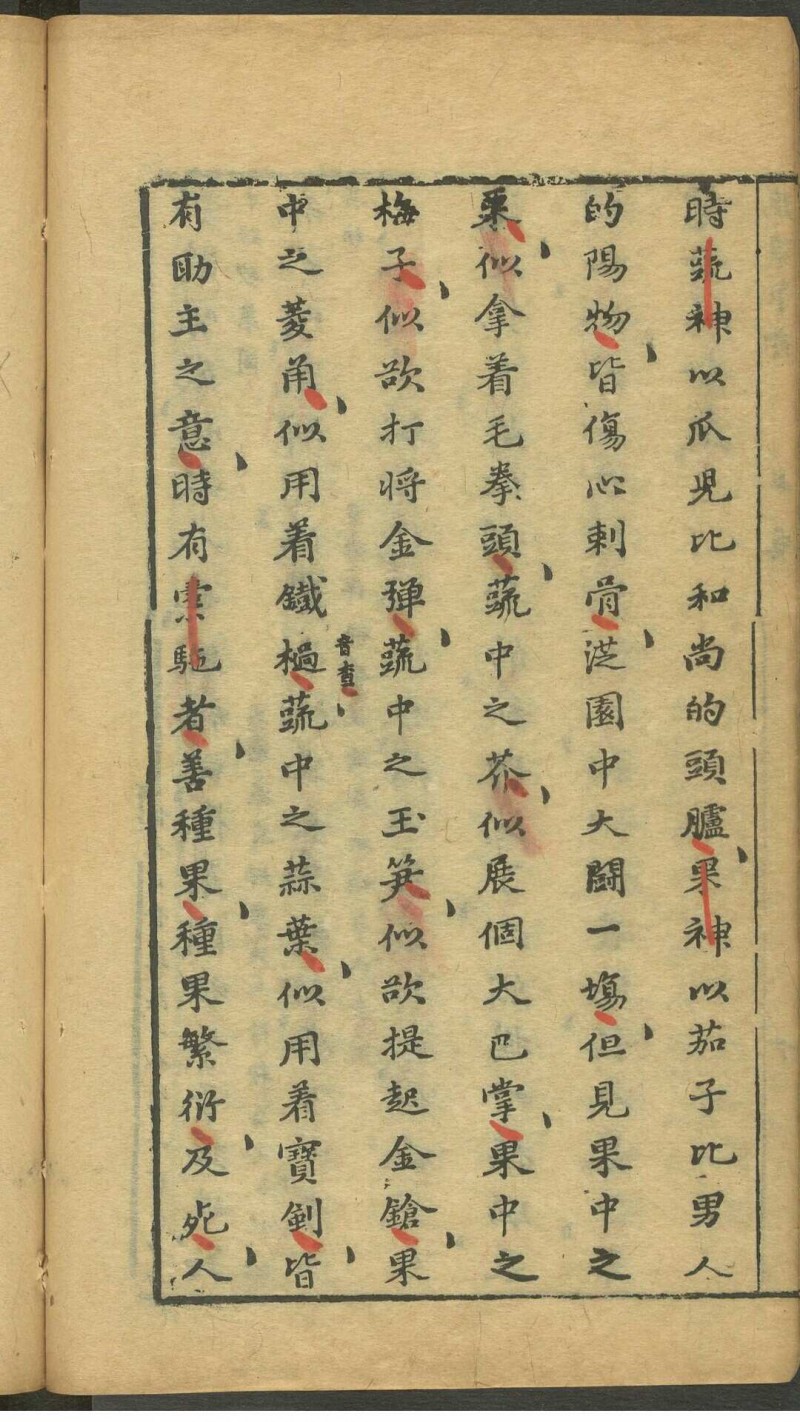 時蔬神以瓜児比和尚的頭臚、果神以茄子比男人
的陽物、皆傷心刺骨、從園中大鬪一塲、但見果中之
栗、似拿着毛拳頭、蔬中之芥、似展個大巴掌、果中之
梅子、似欲打将金弾、蔬中之玉笋、似欲提起金鎗、果
中之菱角、似用着鐵檛音查、蔬中之蒜葉、似用着寳劍、皆
有助主之意、時有橐駞者、善種果、種果繁衍、及死、人